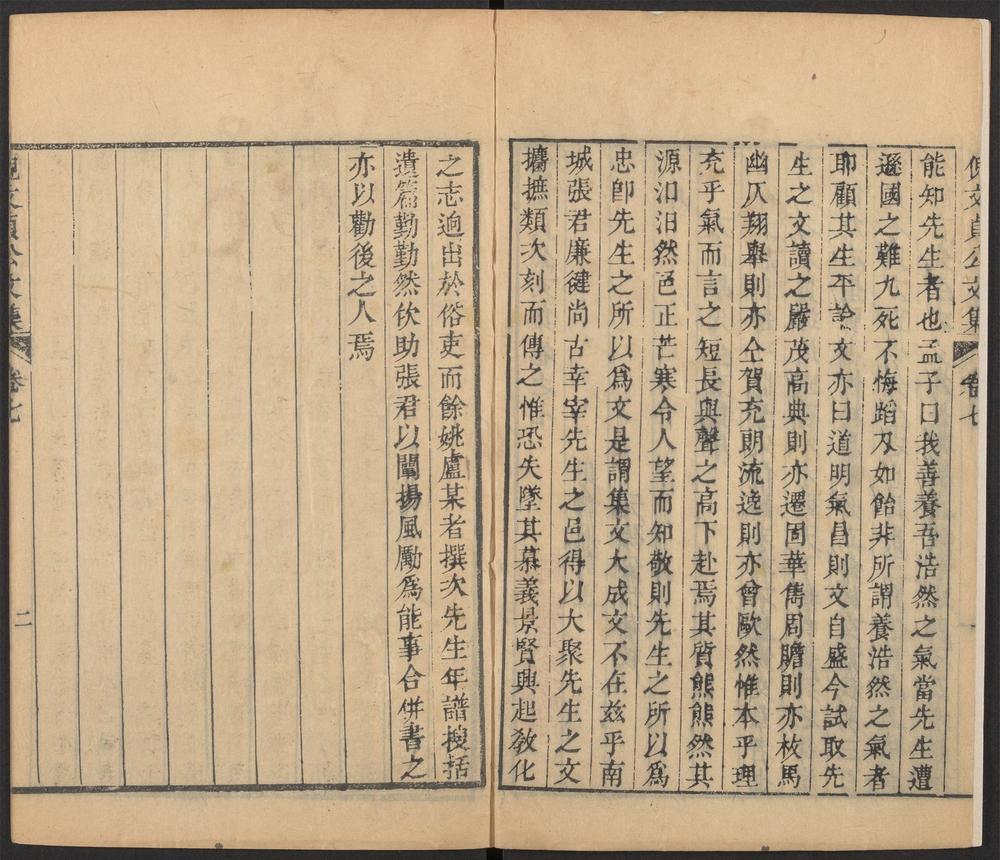 能知先生者也孟子曰我善養吾浩然之氣當先生遭
遜國之難九死不悔蹈刃如飴非所謂養浩然之氣者
耶顧其生平論文亦曰道明氣昌則文自盛今試取先
生之文讀之嚴茂高典則亦遷固華雋周贍則亦枚馬
幽仄翔舉則亦仝賀充朗流逸則亦曾歐然惟本乎理
充乎氣而言之短長與聲之高下赴焉其質熊熊然其
源汩汩然色正芒寒令人望而知敬則先生之所以為
忠卽先生之所以為文是謂集文大成文不在茲乎南
城張君廉健尚古幸宰先生之邑得以大聚先生之文
攟摭類次刻而傳之惟恐失墜其慕義景賢興起敎化
之志逈出於俗吏而餘姚盧某者撰次先生年譜搜括
遺篇勤勤然佽助張君以闡揚風勵爲能事合併書之
亦以勸後之人焉
卷七
二